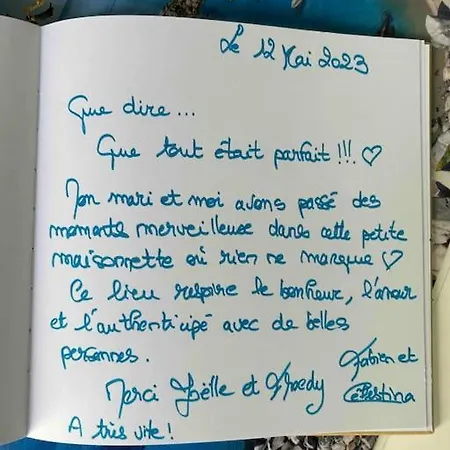 Le 12 Mai 2023
Que dire...
Que tout était parfait !!! ♡
Mon mari et moi avons passé des
moments merveilleuse dans cette petite
maisonnette où rien ne manque ♡
Ce lieu respire le bonheur, l'amour
et l'authenticipé avec de belles
personnes.
Fabien et
Merci Joëlle et Fredy
Célestina
A très vite !